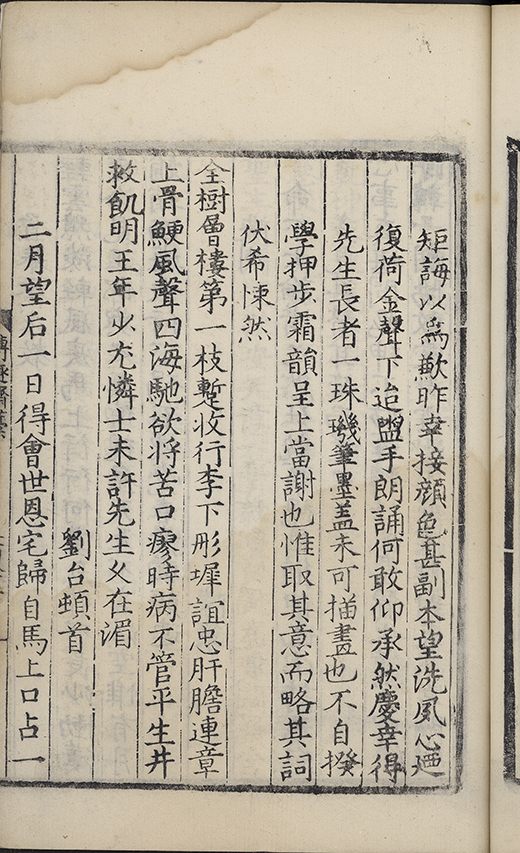 矩誨以爲歉昨幸接顔色甚副本望洗夙心廼
復荷金聲下迨盥手朗誦何敢仰承然慶幸得
先生長者一珠璣筆墨盖未可描畫也不自揆
學押步霜韻呈上當謝也惟取其意而略其詞
伏希悚然
全樹曾樓第一枝暫收行李下彤墀誼忠肝膽連章
上骨鯁風聲四海馳欲將苦口瘳時病不管平生井
救飢明王年少尤憐士未許先生久在湄
劉台頓首
二月望后一日得會世恩宅歸自馬上口占一